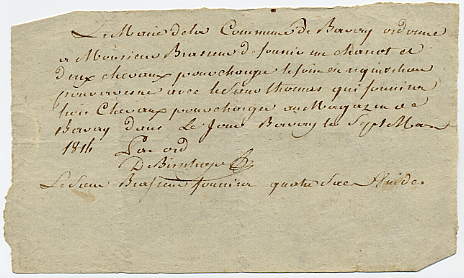 Le Maire de la Commune de Bavay ordonne
a Monsieur Brasseur de fournir un chariot et
deux chevaux pour charger le foin en requisition
pour avesne avec le Sieur thomas qui fournira
trois Chevaux pour charger au Magazin de
Bavay dans Le Jour Bavay le Sept Mars
1814
Par ord
Le Sieur Brasseur fournira quatre Sac